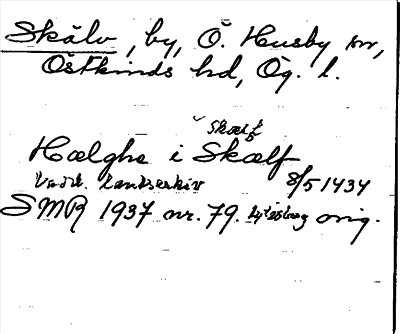 Skälv, by, Ö. Husby sn,
Östkinds hd, Ög. l.
Skælf
Hælghe i Skælf
Vadst. landsarkiv 8/5 1434
SMR 1937 nr. 79. orig.